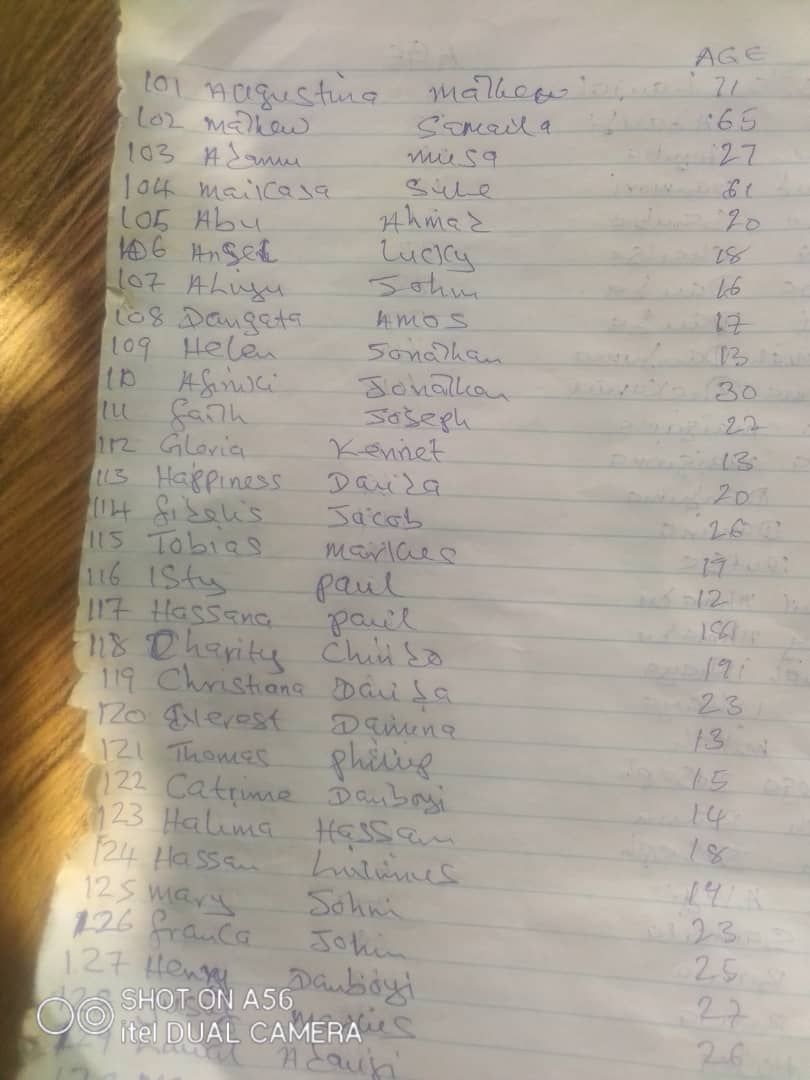 AGE
101 Augustina Mathew 71
102 mathew Samaila 65
103 Adamu musa 27
104 maikasa Sule 61
105 Abu Ahmad 20
106 Angel Lucky 18
107 Aliyu John 16
108 Dangata AMOS 17
109 Helen Jonathan 13
110 Afiniki Jonathan 30
111 faith Joseph 27
112 Gloria Kennet 13
113 Happiness Dauda 20
114 fidelis Jacob 26
115 Tobias markus 17
116 Isty paul 12
117 Hassana paul
118 Charity 19
119 Christiana Dauda 23
120 Everest Damina 13
121 Thomas philip 15
122 Catrine Danboyi 14
123 Halima Hassan 18
124 Hassan 14
125 mary John 23
126 franca John 25
127 Henry Danboyi 27
26
SHOT ON A56
itel DUAL CAMERA